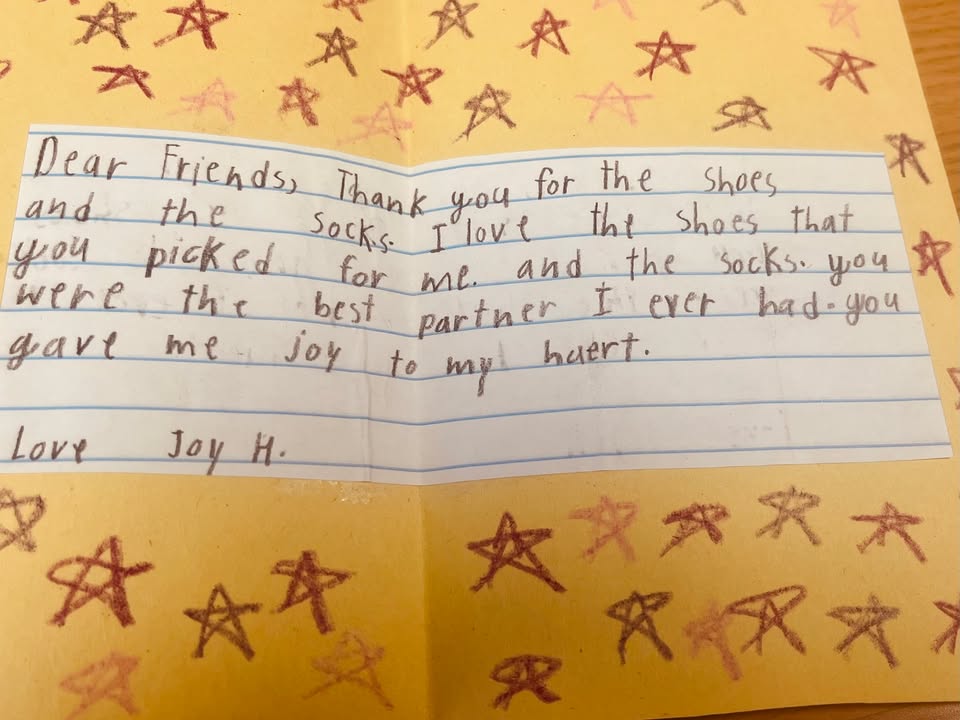 Dear Friends, Thank you for the shoes
and the socks. I love the shoes that
you picked for me. and the socks. you
were the best partner I ever had. you
gave me joy to my huert.
Love Joy H.